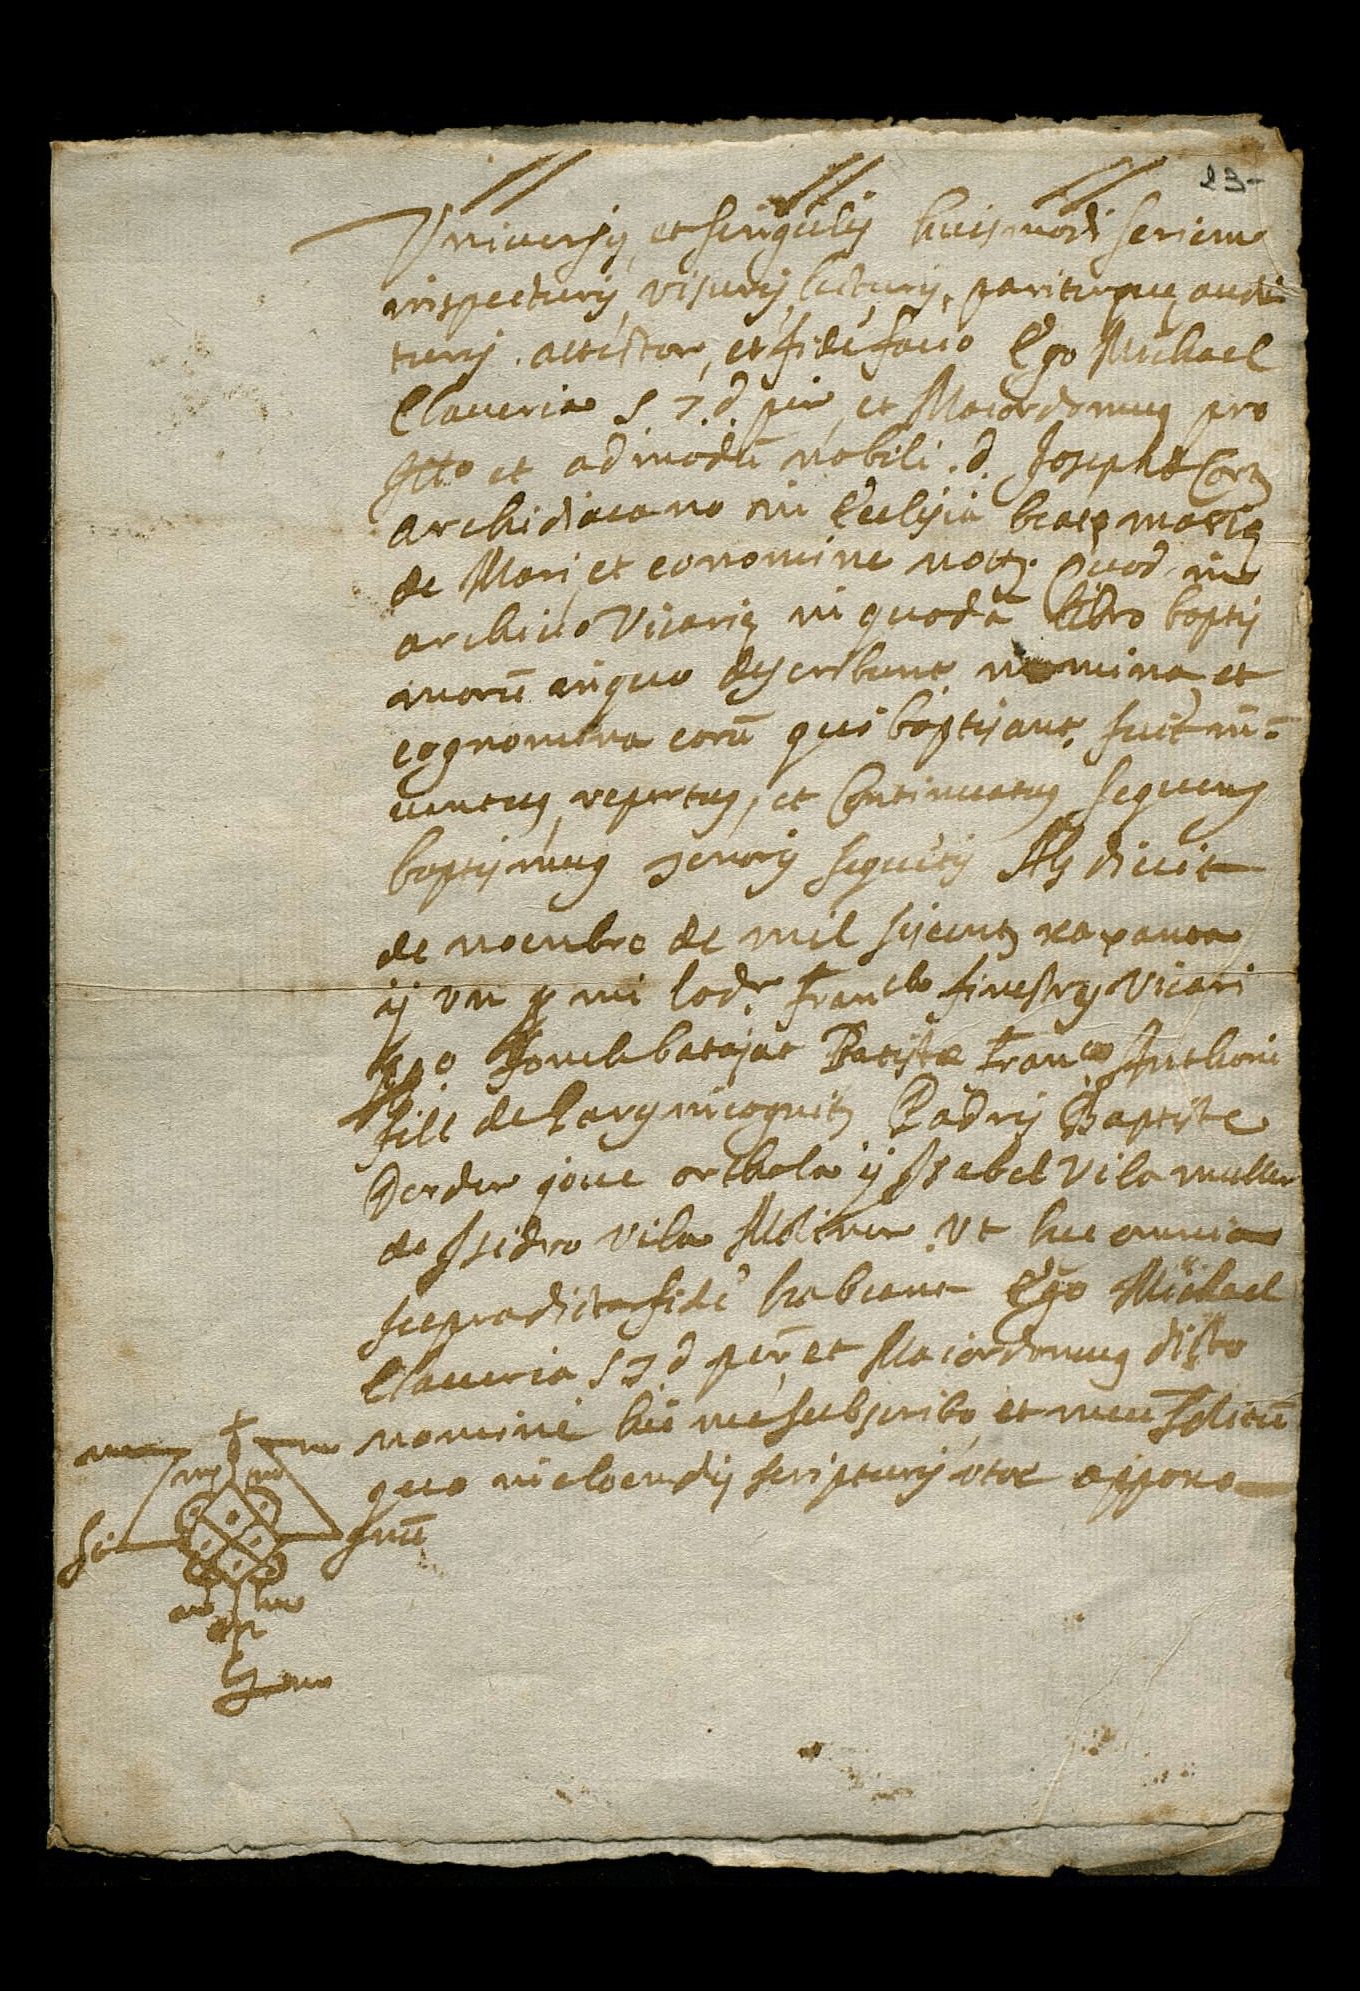 23
Vniversis, et singulis huiusmodi seriem
inspecturis, visuris, lecturis, pariterque audi
turis. attestor, et fidē facio Ego Michael
Claueria S T d. pr̄r et Maiordomus pro
Illo et admodū nobili. d. Josepho Corts
archidiacano in Ecclesia beatę marię
de Mari, et eo nomine Quod in
archiuo Vicarię in quodā libro baptis
morū in quo describunt nomina et
cognomina eorū qui baptisant, fuit in=
uentus, repertus, et Continuatus sequens
baptismus tenoris sequētis Als divit
de noembre de mil siscents xexanta
y vn ꝑ mi lo dr. Franch finestres Vicari
fonch batejat Batista Franco Anthoni
fill de Pares incognits Padrins Baptiste
Verder joue orthola y Isabel Vila muller
de Isidro Vila Moliner. Vt hec omnia
supradicta fidē habeant Ego Michael
Claueria S T d pr̄r et Maiordomus dicto
nomine hic me subscribo, et meū Solitū
quo in cloendis scripturis vtor appono
Si num